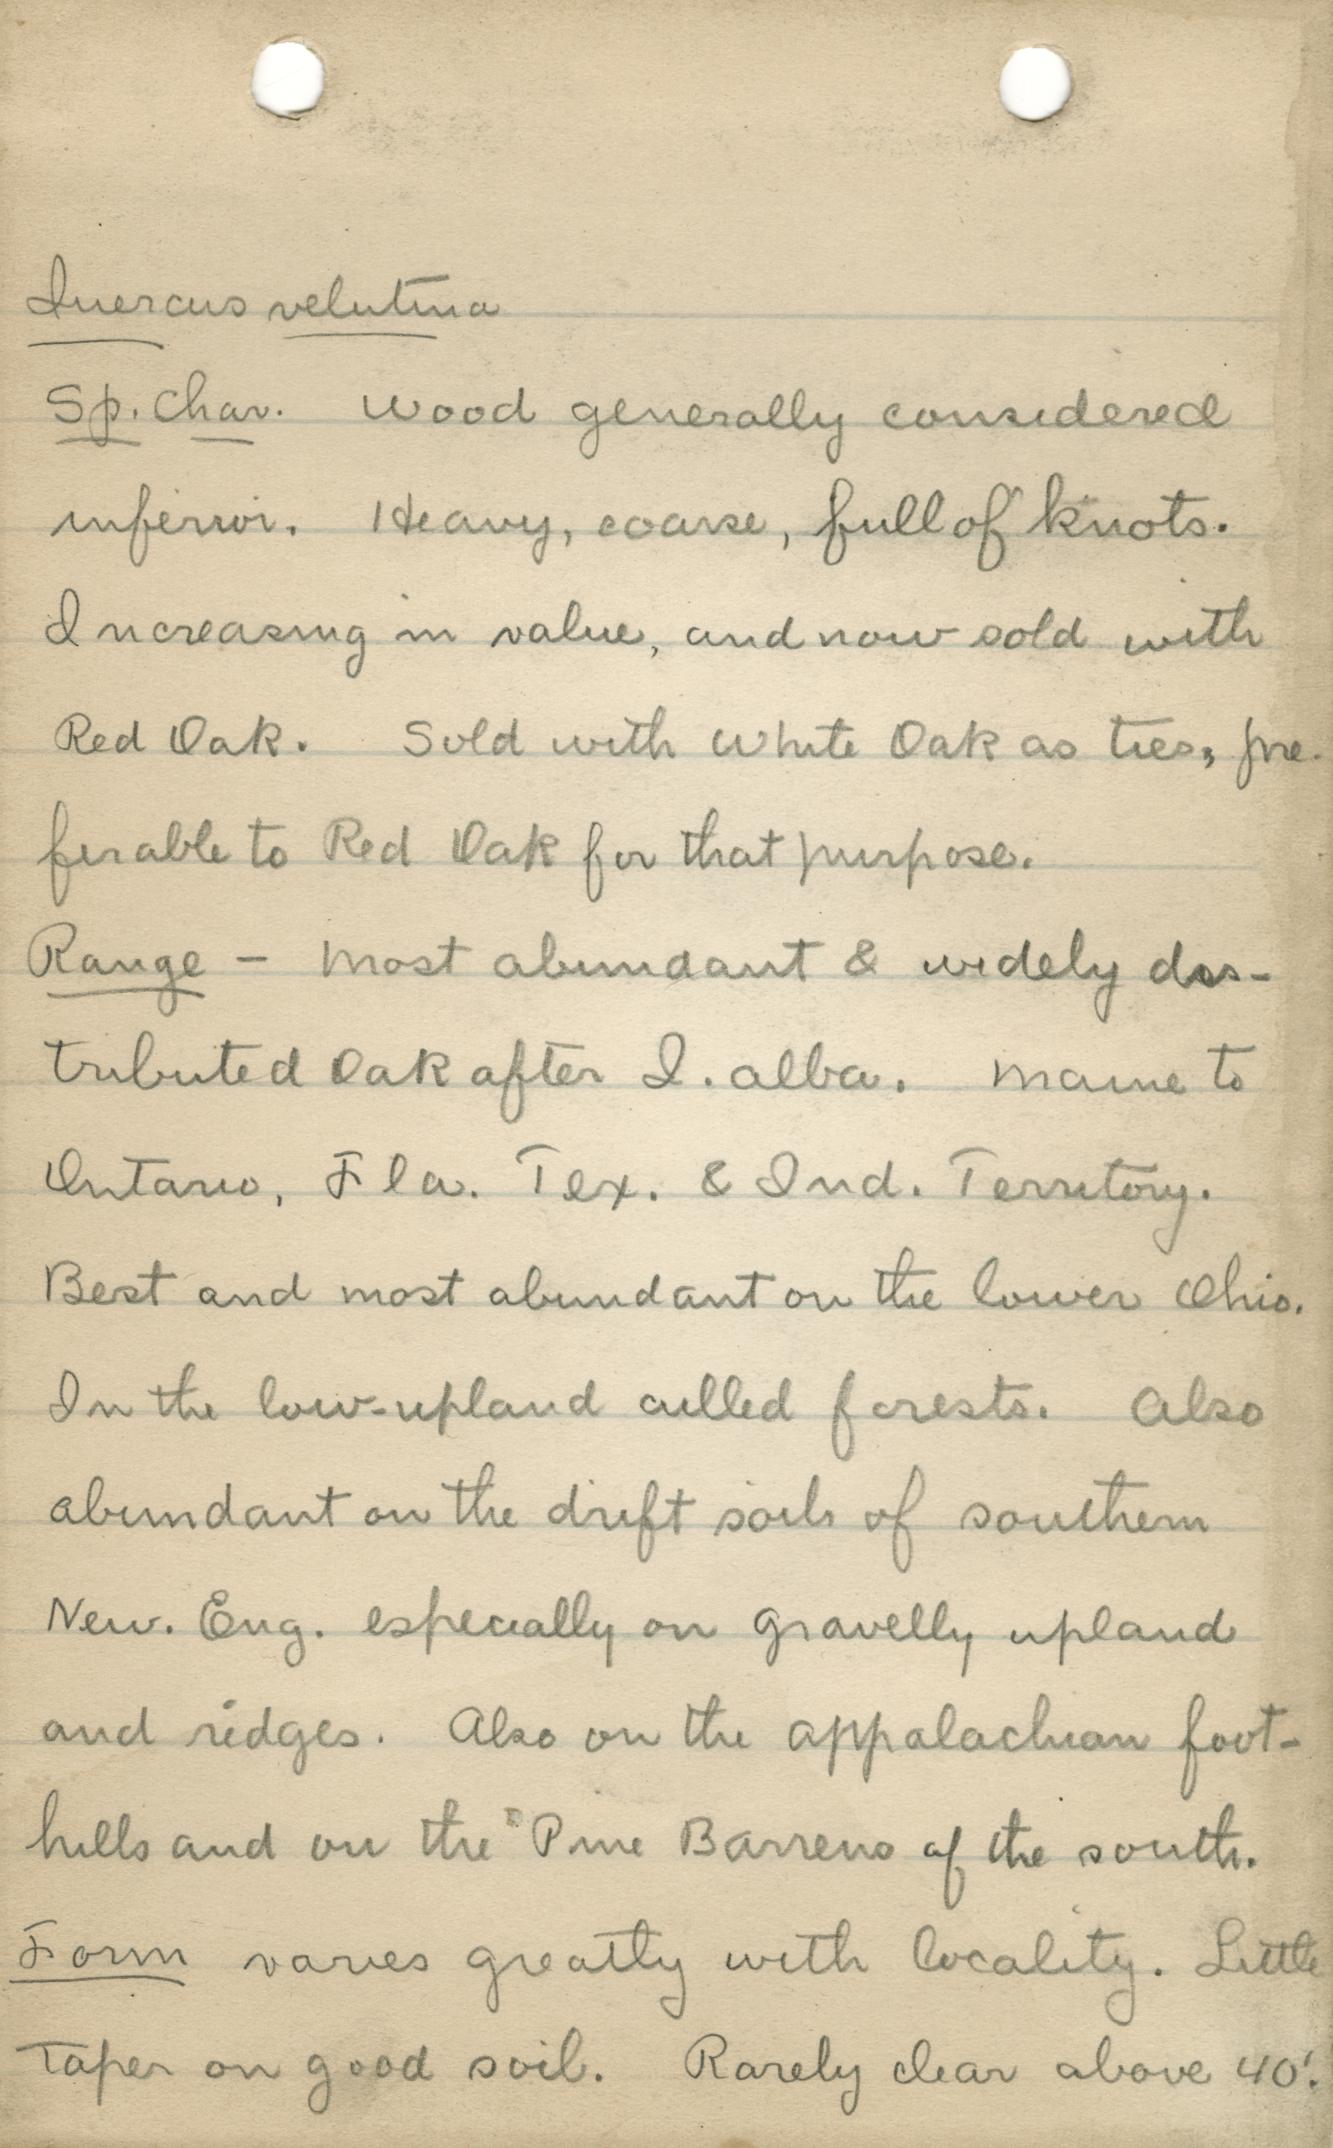 Quercus velutina
Sp. Char. Wood generally considered
inferior. Heavy, coarse, full of knots.
Increasing in value, and now sold with
Red Oak. Sold with White Oak as ties, pre-
ferable to Red Oak for that purpose.
Range - Most abundant & widely dis-
tributed Oak after Q. alba. Maine to
Ontario, Fla. Tex. & Ind. Territory.
Best and most abundant on the lower Ohio.
In the low-upland culled forests. Also
abundant on the drift soils of southern
New. Eng. especially on gravelly upland
and ridges. Also on the Appalachian foot-
hills and on the Pine Barrens of the south.
Form varies greatly with locality. Little
taper on good soil. Rarely clear above 40'.